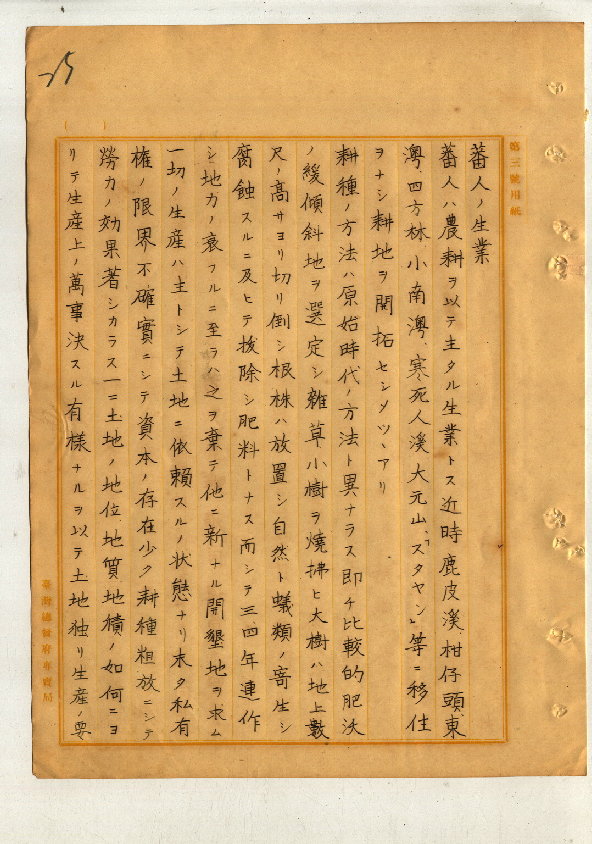 25
第三號用紙
蕃人ノ生業
蕃人ハ農耕ヲ以テ主タル生業トス近時鹿皮溪、柑仔頭、東
澳、四方林、小南澳、寒死人溪、大元山、「スタヤン」等ニ移住
ヲナシ耕地ヲ開拓センメツヽアリ
耕種ノ方法ハ原始時代ノ方法ト異ナラス即チ比較的肥沃
ノ緩傾斜地ヲ選定シ雜草小樹ヲ燒拂ヒ大樹ハ地上數
尺ノ高サヨリ切リ倒シ根株ハ放置シ自然ト蟻類ノ寄生シ
腐蝕スルニ及ヒテ拔除シ肥料トナス而シテ三、四年連作
シ地力ノ衰フルニ至ラハ之ヲ棄テ他ニ新ナル開墾地ヲ求ム
一切ノ生産ハ主トシテ土地ニ依賴スルノ狀態ナリ未タ私有
權ノ限界不確實ニシテ資本ノ存在少ク耕種粗放ニシテ
勞力ノ効果著シカラス一ニ土地ノ地位、地質、地積ノ如何ニヨ
リテ生産上ノ萬事決スル有樣ナルヲ以テ土地獨リ生産ノ要
臺灣總督府專賣局